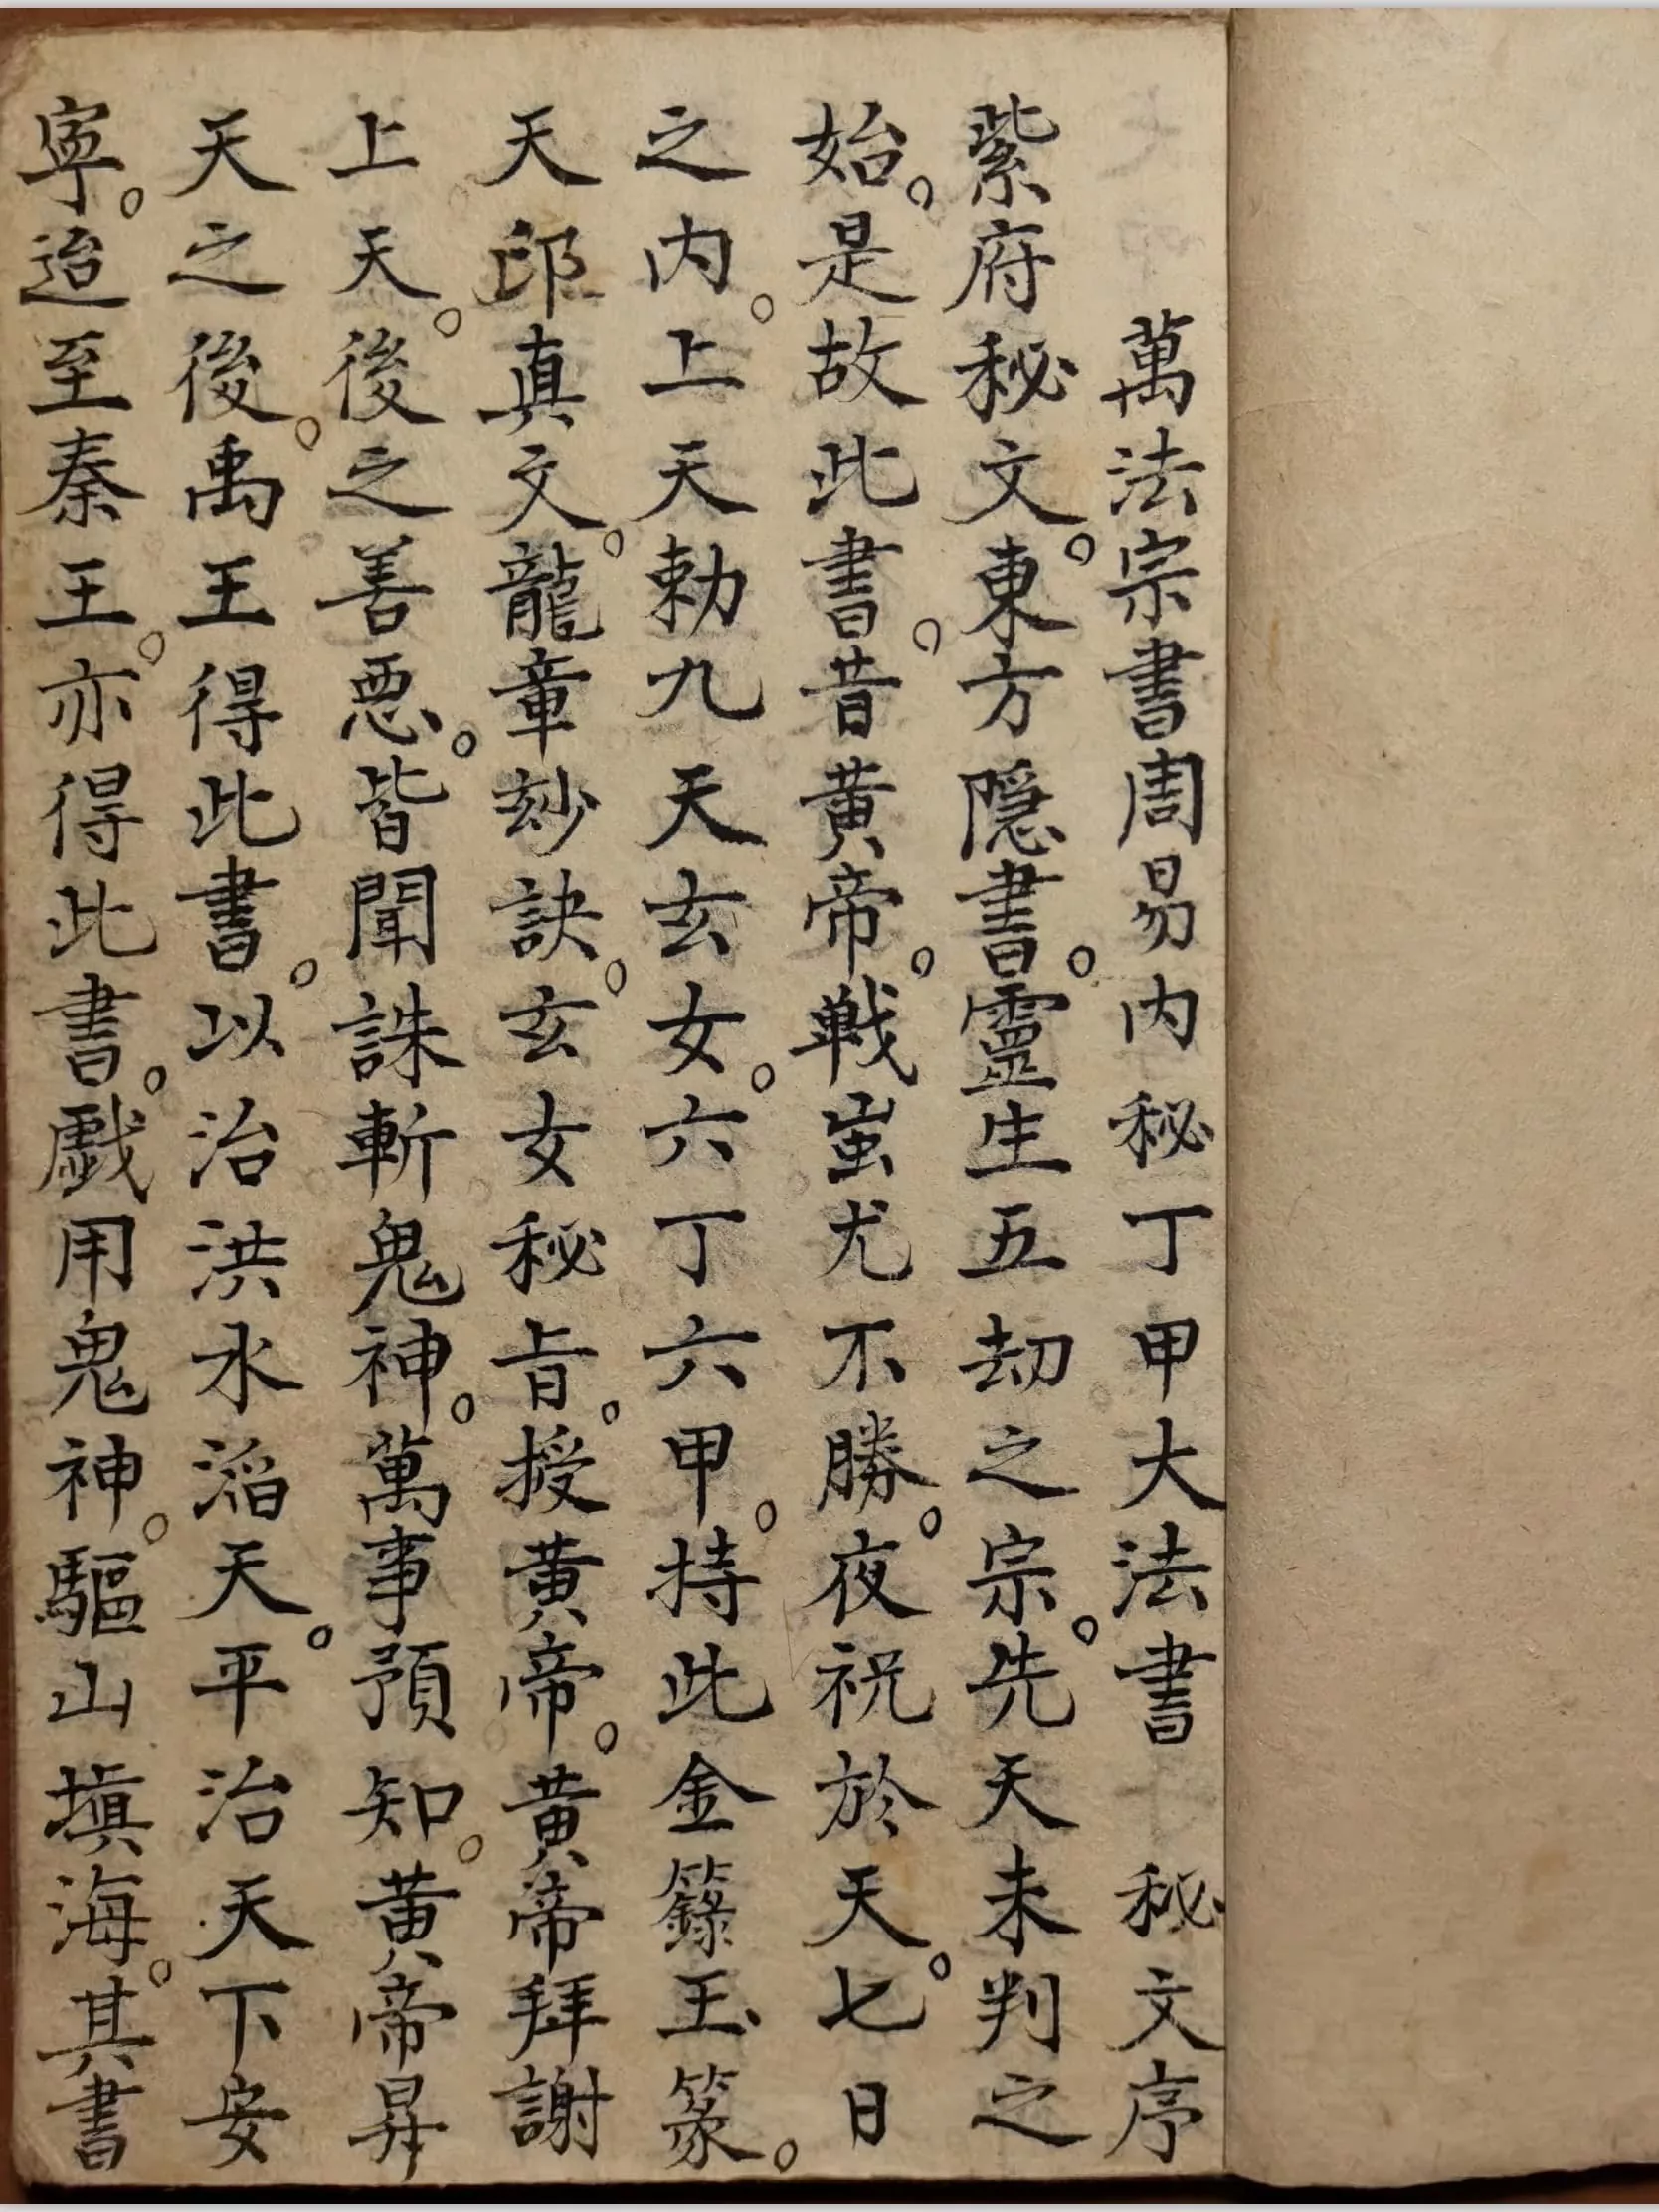 萬法宗書周易内秘丁甲大法書 秘文序
紫府秘文。東方隱書。靈生五劫之宗。先天未判之
始。是故此書。昔黄帝。戰蚩尤不勝。夜祝於天。七日
之内。上天勅九天玄女。六丁六甲。持此金籙玉篆。
天印真文。龍章玅訣。玄女秘旨。授黄帝。黄帝拜謝
上天。後之善悪。皆聞誅斬鬼神。萬事預知。黄帝昇
天之後。禹王得此書。以治洪水滔天。平治天下安
寧。迨至秦王。亦得此書。戲用鬼神。驅山填海。其書